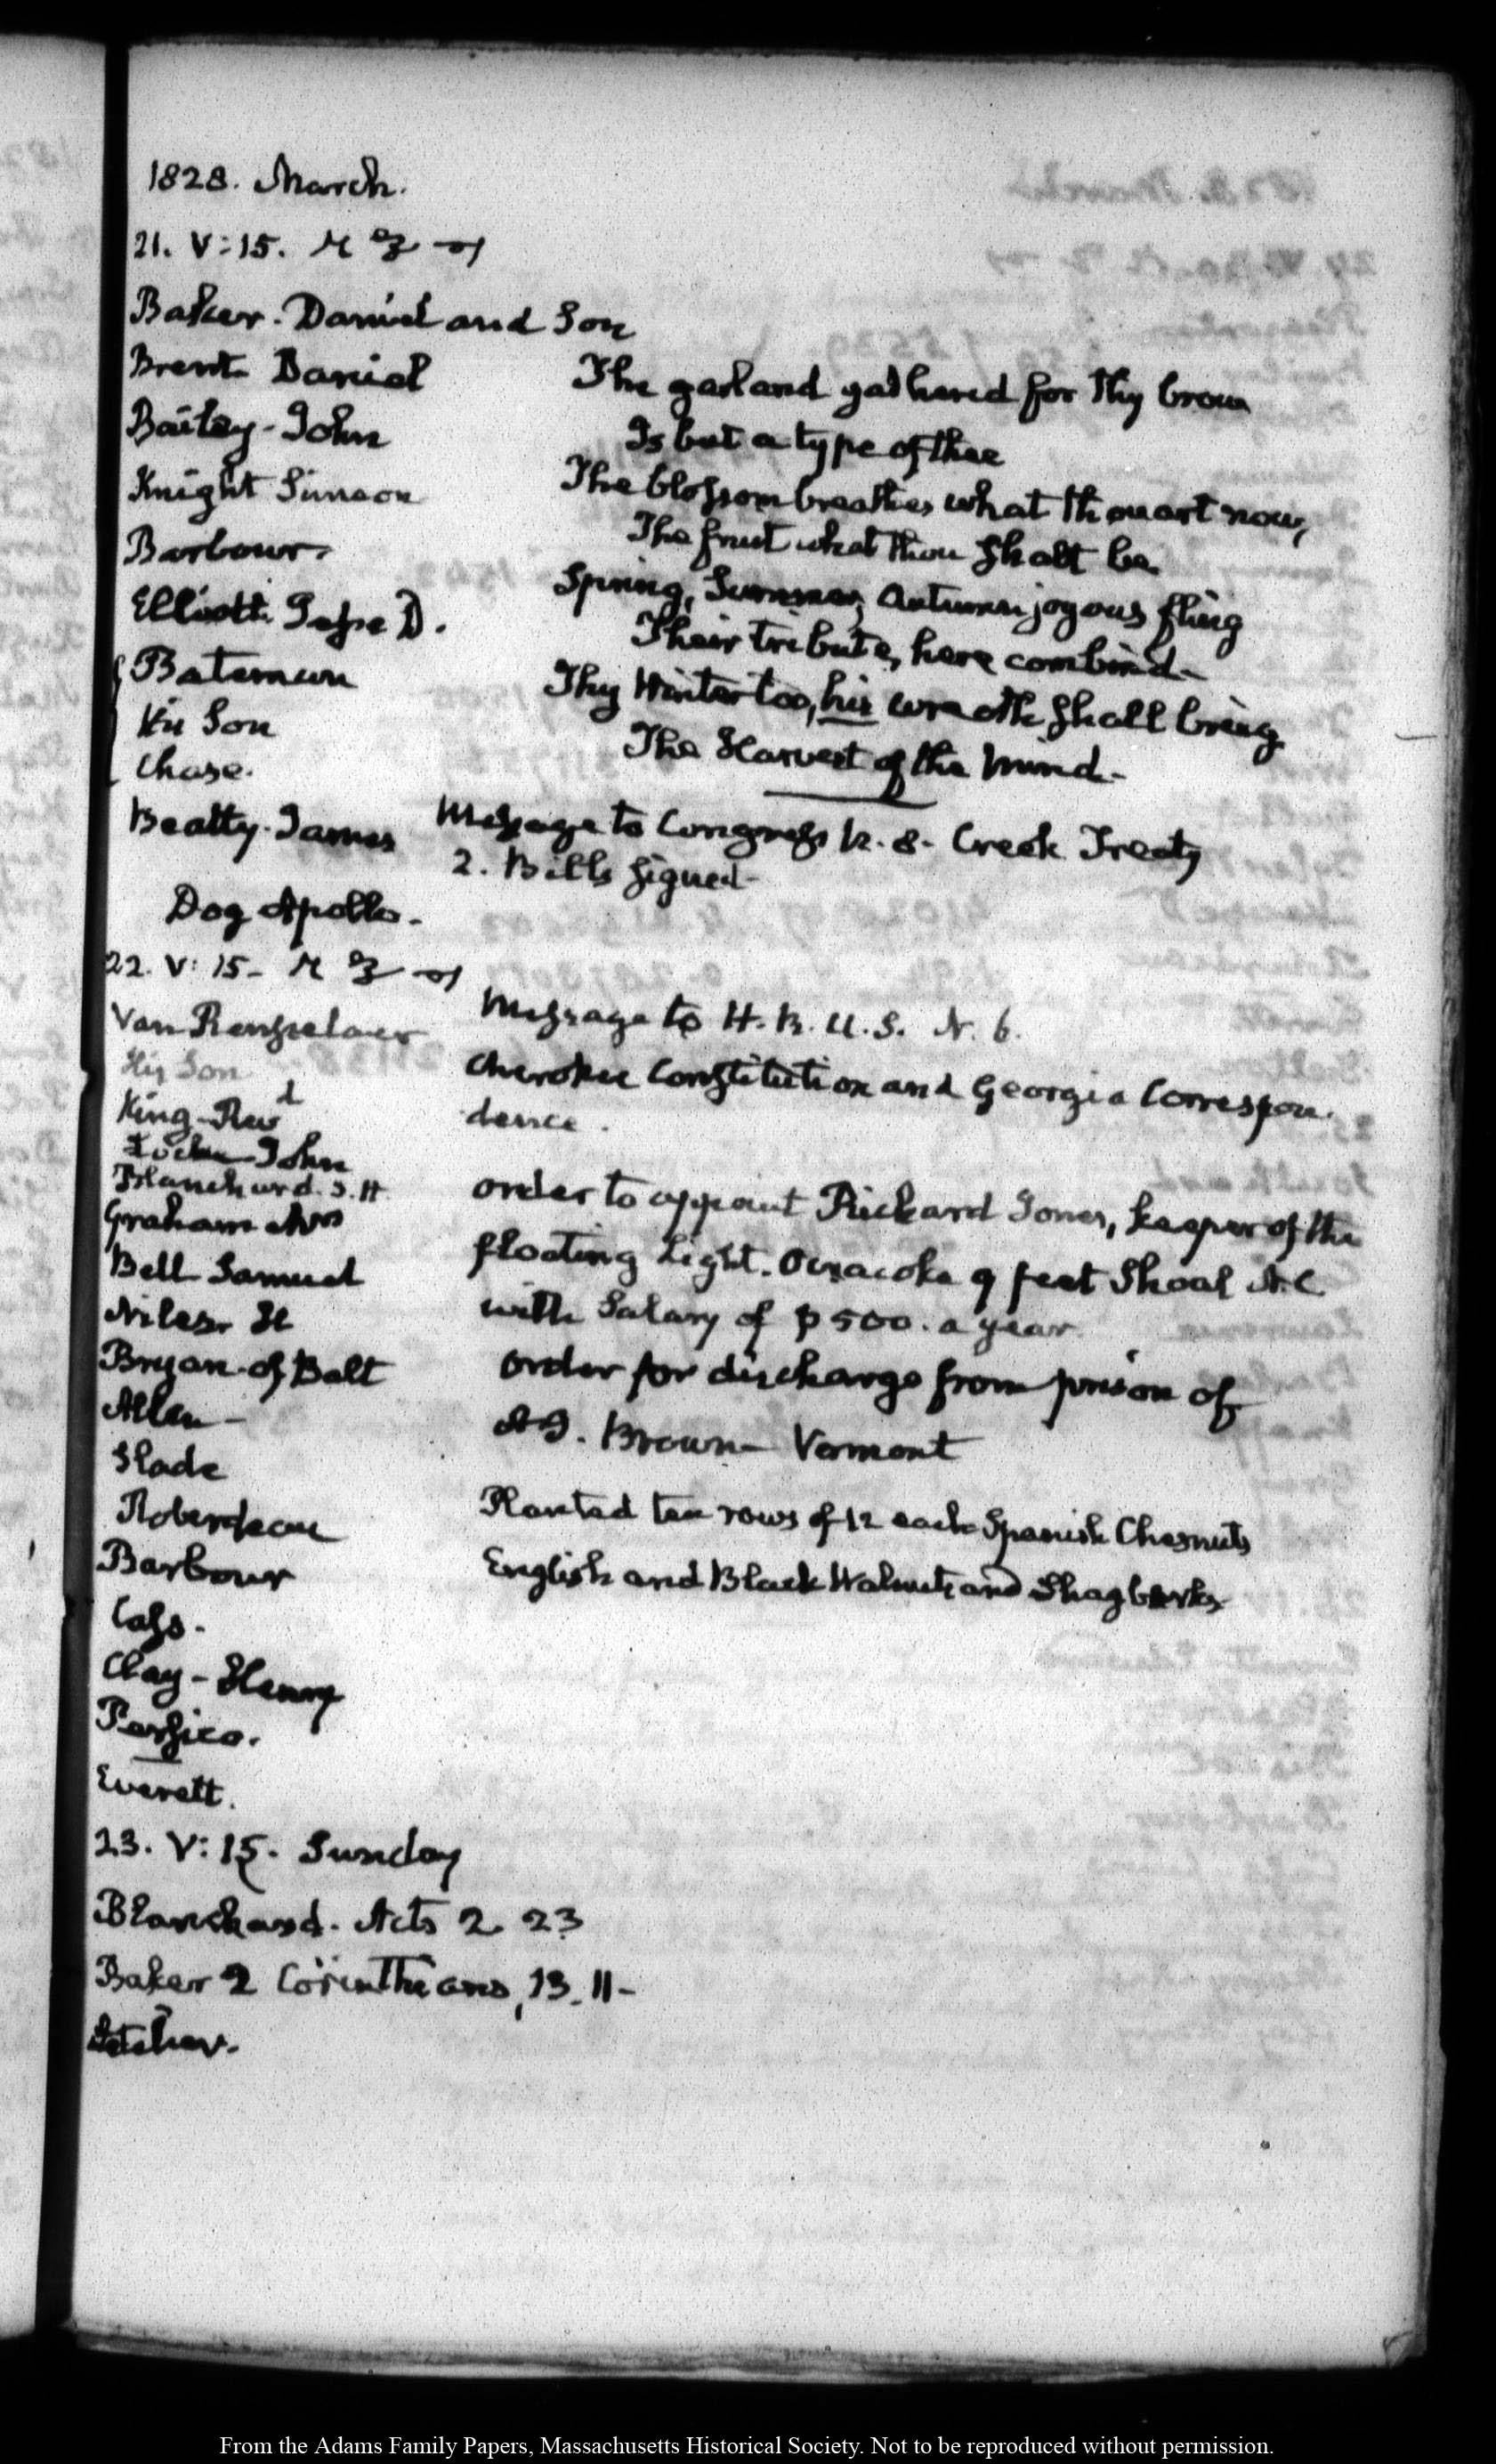 1828. March.
21. V:15.
Baker. Daniel and Son
Brent Daniel
Bailey - John
Knight Simeon
Barbour.
Elliott. Jesse D.
Bateman
his Son
Chase.
Beatty. James
Dog Apollo.
The garland gathered for Thy brow
Is but a type of thee
The blossom breathes what thou art now,
The fruit what thou shalt be
Spring, Summer, Autumn joyous fling
Their tribute, here combin'd-
Thy Winter too, his wreath shall bring
The Harvest of the Mind.-
Message to Congress N. 8. Creek Treaty
2. Bills signed-
22. V:15-
Van Rensselaer
His Son
King- Rev d
Locke John
Blanchard. S. H
Graham Mrs
Bell Samuel
Niles. H
Bryan. of Balt
Allen-
Slade
Roberdeau
Barbour
Cass.
Clay - Henry
Persico.
Everett.
Message to H. R. U. S. N. 6.
Cherokee Constitution and Georgia Correspon.
dence.
order to appoint Rickard Jones, keeper of the
floating Light. Ocracoke 9 feet Shoal N.C
with Salary of $500. a year
order for discharge from prison of
Brown- Vermont
Planted ten rows of 12 each Spanish Chesnuts
English and Black Walnuts and Shagbarks
23. V:15. Sunday
Blanchard. Acts 2. 23
Baker 2 Corinthians, 13. 11-
Letcher.
From the Adams Family Papers, Massachusetts Historical Society. Not to be reproduced without permission.